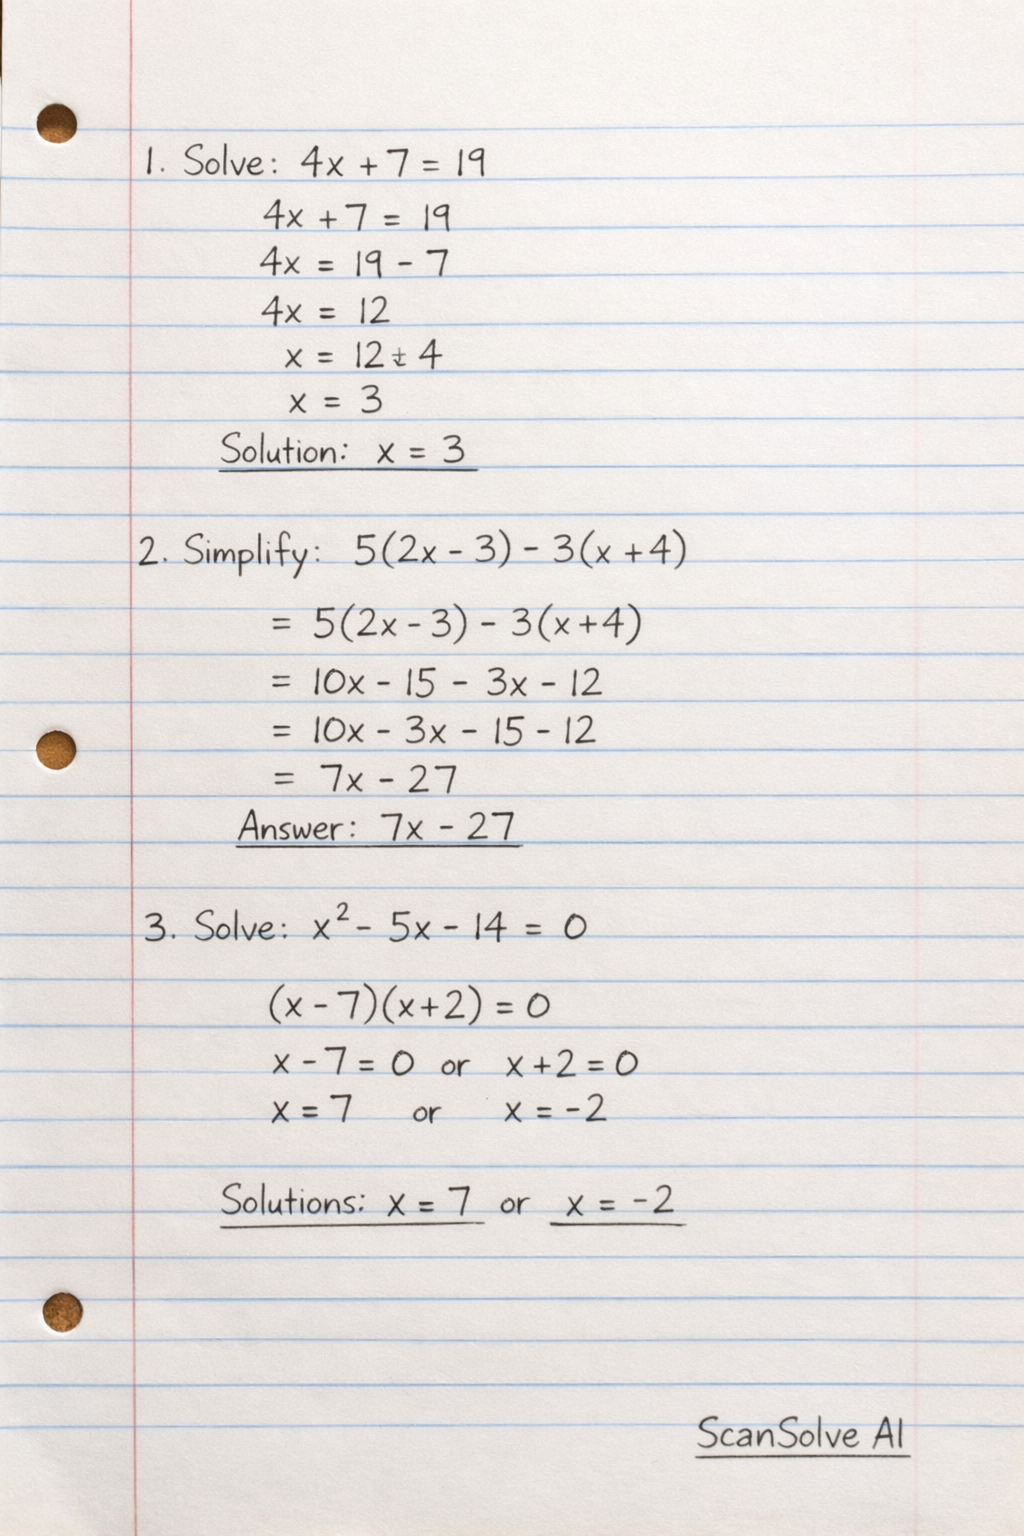 1. Solve: 4x + 7 = 19
4x + 7 = 19
4x = 19 - 7
4x = 12
x = 12 ÷ 4
x = 3
Solution: x = 3
2. Simplify: 5(2x - 3) - 3(x + 4)
= 5(2x - 3) - 3(x + 4)
= 10x - 15 - 3x - 12
= 10x - 3x - 15 - 12
= 7x - 27
Answer: 7x - 27
3. Solve: x² - 5x - 14 = 0
(x - 7)(x + 2) = 0
x - 7 = 0 or x + 2 = 0
x = 7 or x = -2
Solutions: x = 7 or x = -2
ScanSolve AI